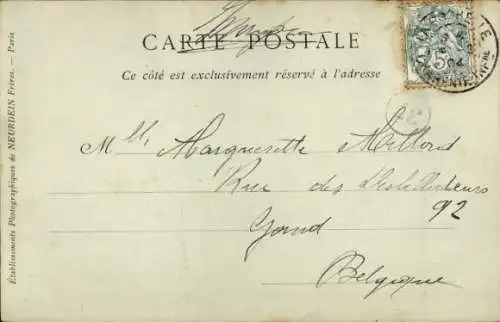 CARTE POSTALE
Ce côté est exclusivement réservé à l'adresse
Mlle Marguerette Millord
Rue des
92
Gand
Belgique
Établissements Photographiques de NEURDEIN Frères. — Paris